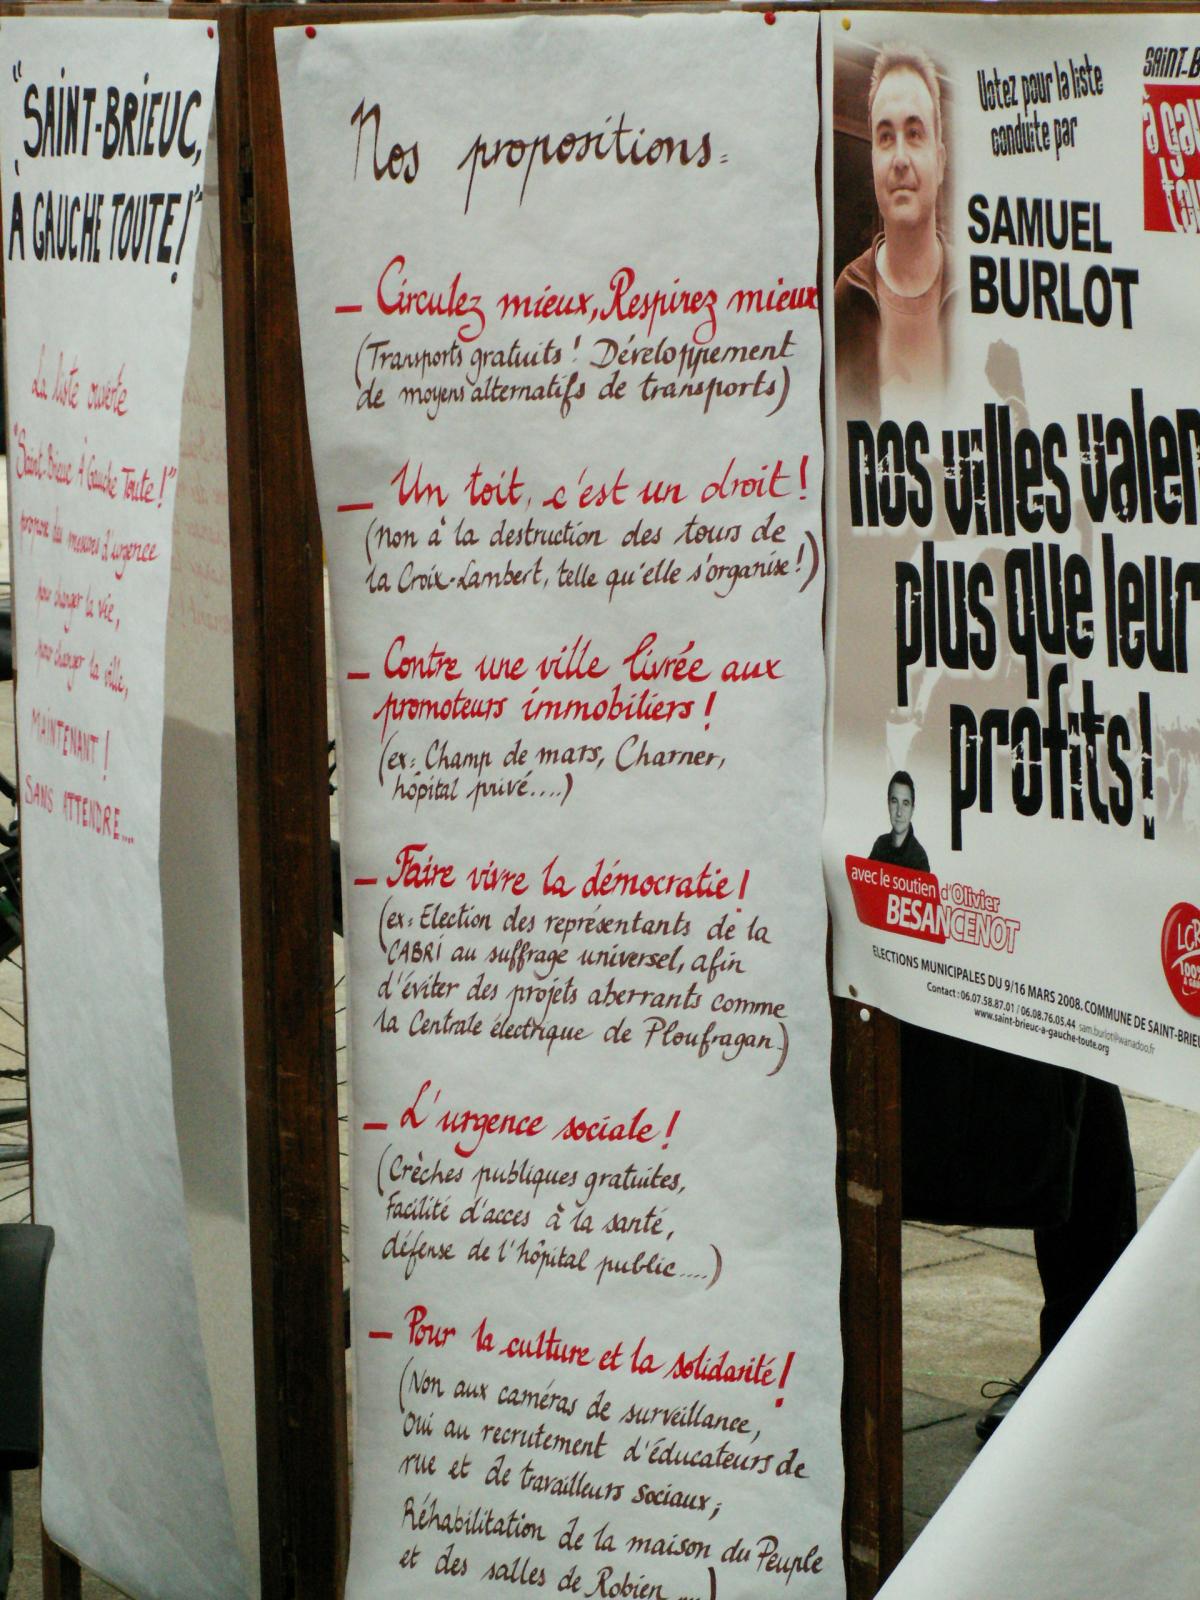 "SAINT-BRIEUC,
À GAUCHE TOUTE!"
La liste ouverte
"Saint-Brieuc À Gauche Toute!"
propose des mesures d'urgence
pour changer la vie,
pour changer la ville,
MAINTENANT!
SANS ATTENDRE...
Nos propositions:
– Circulez mieux, Respirez mieux
(Transports gratuits! Développement
de moyens alternatifs de transports)
– Un toit, c'est un droit!
(non à la destruction des tours de
la Croix-Lambert, telle qu'elle s'organise!)
– Contre une ville livrée aux
promoteurs immobiliers!
(ex: Champ de mars, Charner,
hôpital privé....)
– Faire vivre la démocratie!
(ex: Election des représentants de la
CABRI au suffrage universel, afin
d'éviter des projets aberrants comme
la Centrale électrique de Ploufragan)
– L'urgence sociale!
(Crèches publiques gratuites,
Facilité d'acces à la santé,
défense de l'hôpital public....)
– Pour la culture et la solidarité!
(Non aux caméras de surveillance,
Oui au recrutement d'éducateurs de
rue et de travailleurs sociaux;
Réhabilitation de la maison du Peuple
et des salles de Robien ...)
Votez pour la liste
conduite par
SAMUEL
BURLOT
SAINT-B
à gau
tou
nos villes valen
plus que leur
profits!
avec le soutien d'Olivier
BESANCENOT
LCR
100%
à gau
ELECTIONS MUNICIPALES DU 9/16 MARS 2008. COMMUNE DE SAINT-BRIEU
Contact : 06.07.58.87.01 / 06.08.76.05.44 sam.burlot@wanadoo.fr
www.saint-brieuc-a-gauche-toute.org